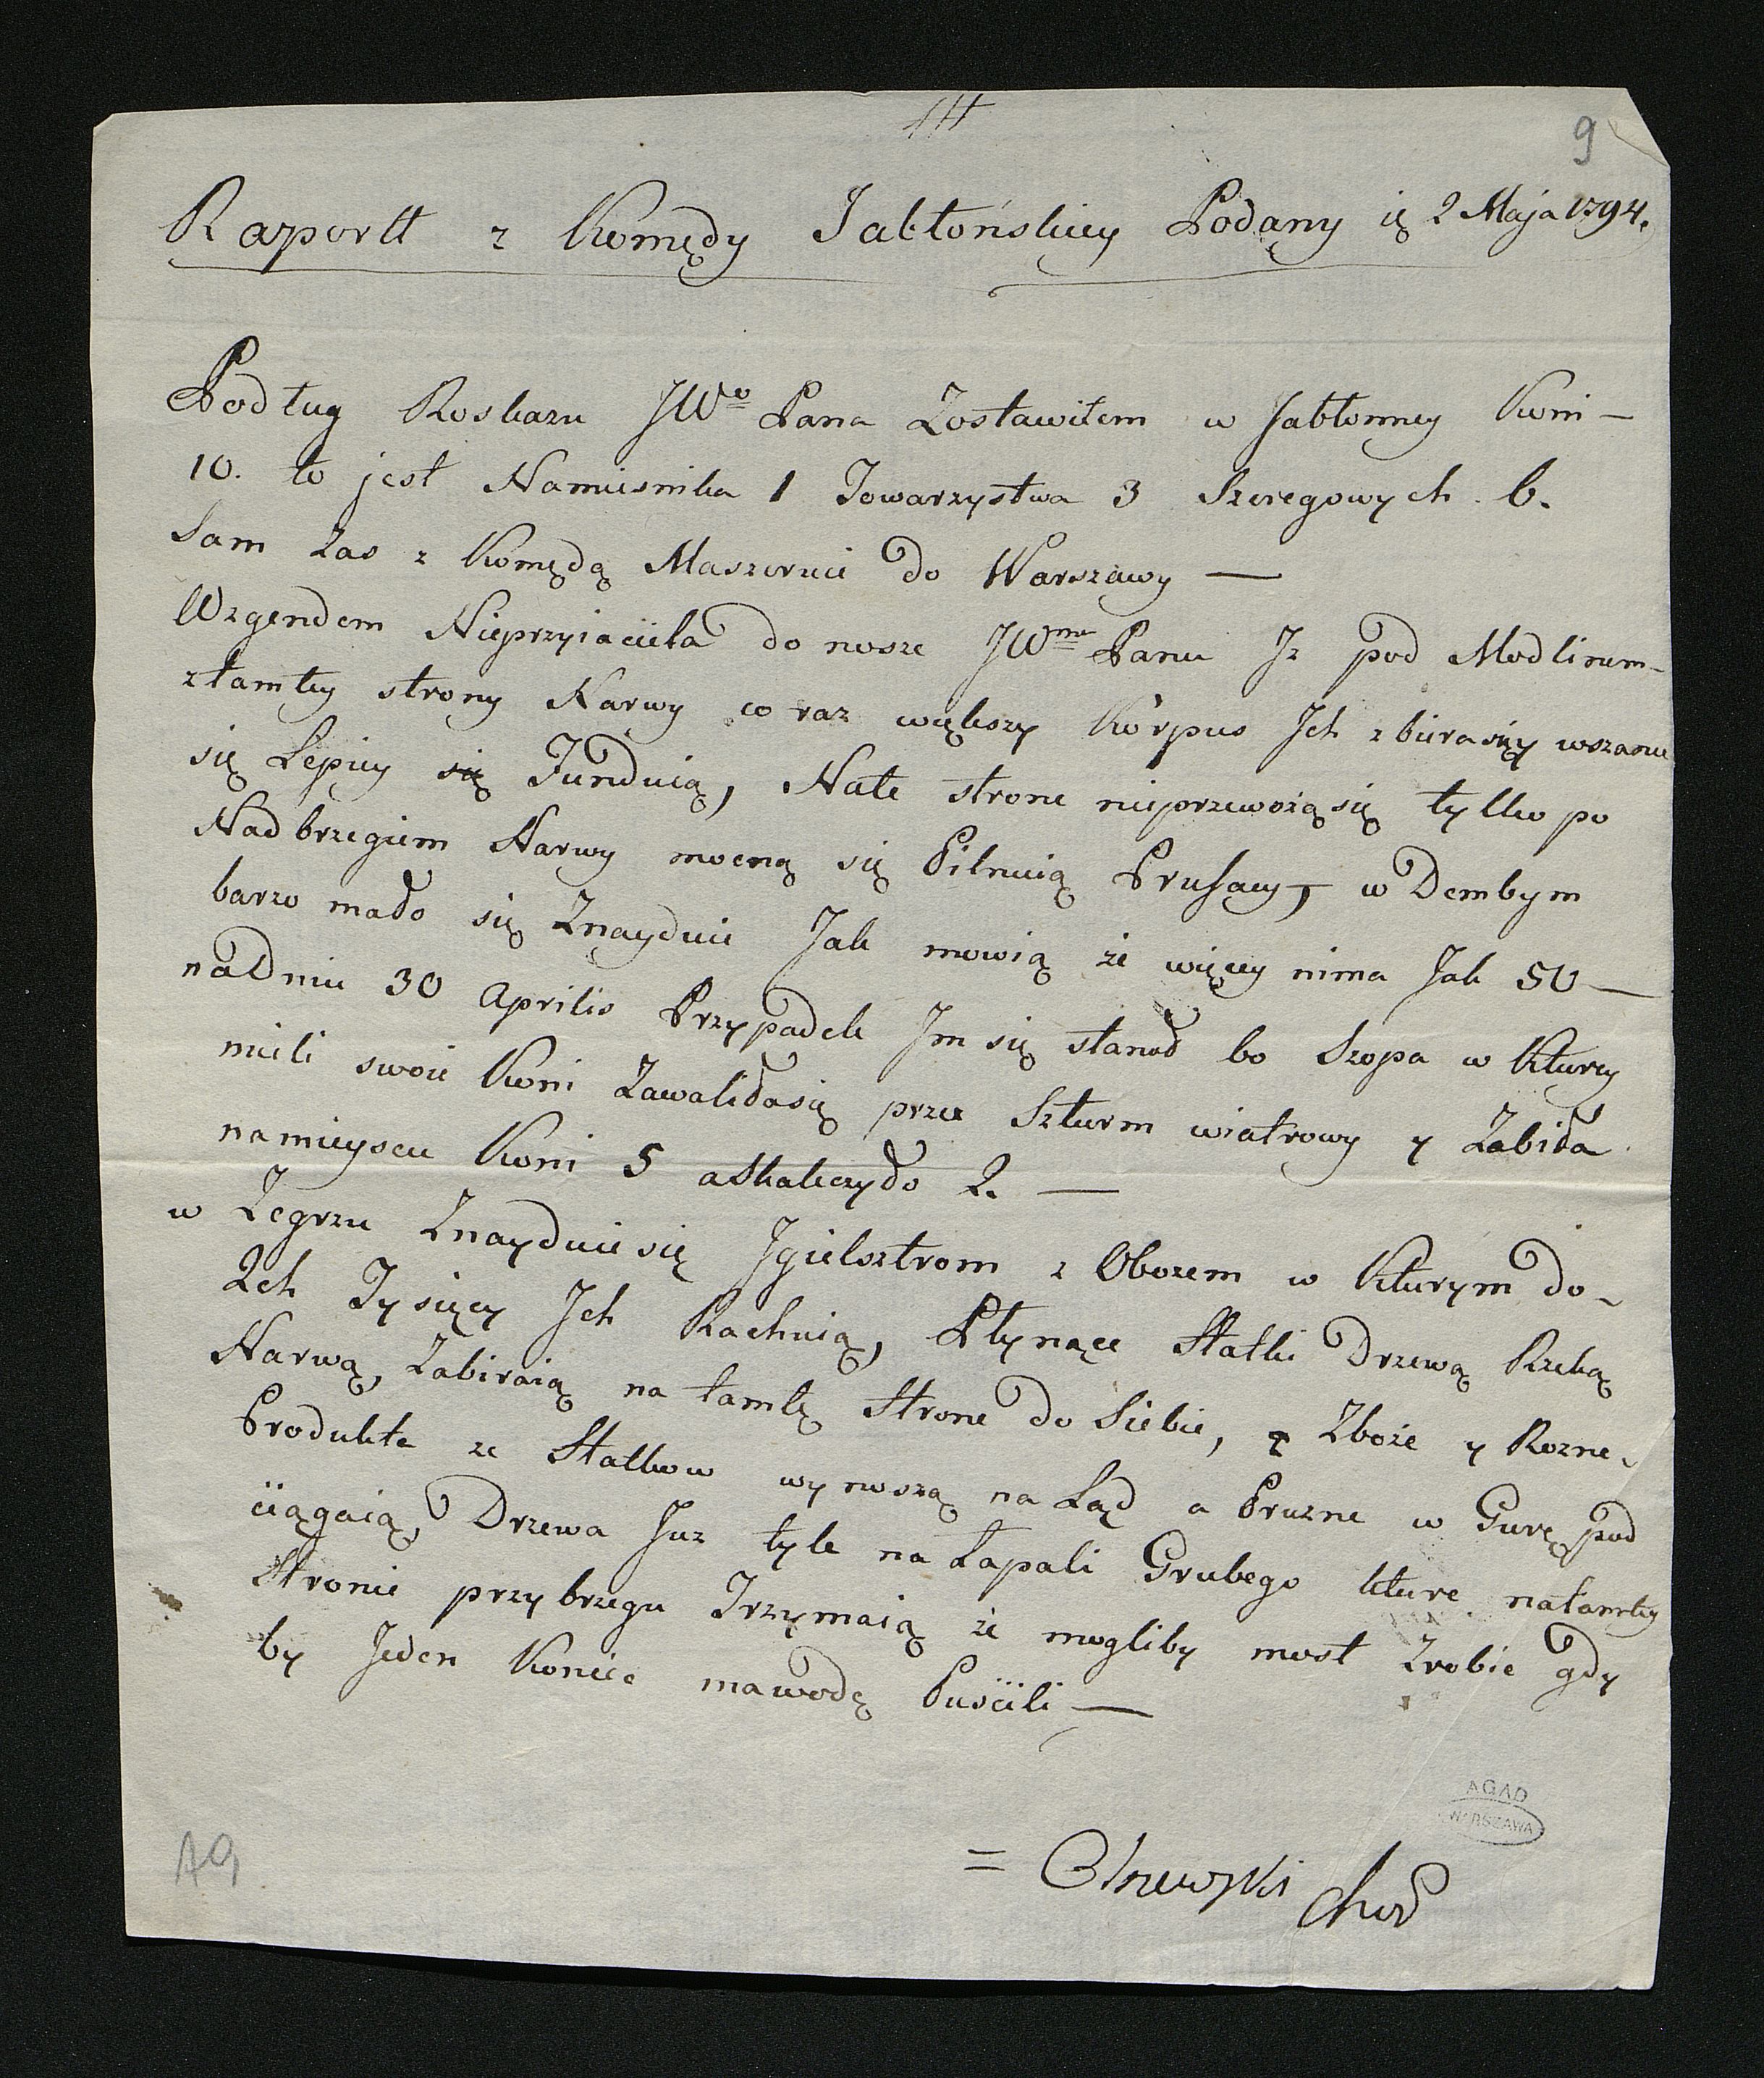 9
Raportt z Komędy Jabłońskiey Podany ię 2 Maja 1794.
Podług Roskazu JWo Pana Zostawiłem w Jabłonney Koni —
10. to jest Namiesnika 1 Towarzystwa 3 Szeregowych 6.
Sam Zas z Komędą Maszeruie do Warszawy —
Wzgendem Nieprzyiaciela do nosze JWmu Panu Jz pod Modlinem —
ztamtey strony Narwy co raz większy Korpus Jch zbiera się y wszańcu
się Lepiey Funduią, Nate strone nieprzewożą się tylko po
Nad brzegiem Narwy mocną się Pilnuią Prusacy, — w Dembym
barzo mado się Znayduie Jak mowią że więcey nima Jak 50 —
na Dniu 30 Aprilis Przypadek Jm się stanod bo Szopa w Kturey
mieli swoie Koni Zawalida się przez Szturm wiatrowy y Zabida
na mieyscu Koni 5 a Skaleczydo 2. —
w Zegrzu Znayduie się Jgielsztrom z Obozem w Kturym do —
2ch Tysięcy Jch Rachuią, Płynące Statki Drzewą Rzeką
Narwą, Zabiraią na tamtę Strone do Siebie, y Zboże y Rozne
Produkta ze Statkow wynoszą na Ląd a Pruzne w Gurę pod
ciągaią, Drzewa Juz tyle na Łapali Grubego kture natamtey
Stronie przy brzegu Trzymaią że mogliby most Zrobic gdy
by Jeden Koniec nawodę Puscili —
= Olszewski Chod
AGAD
WARSZAWA
AG